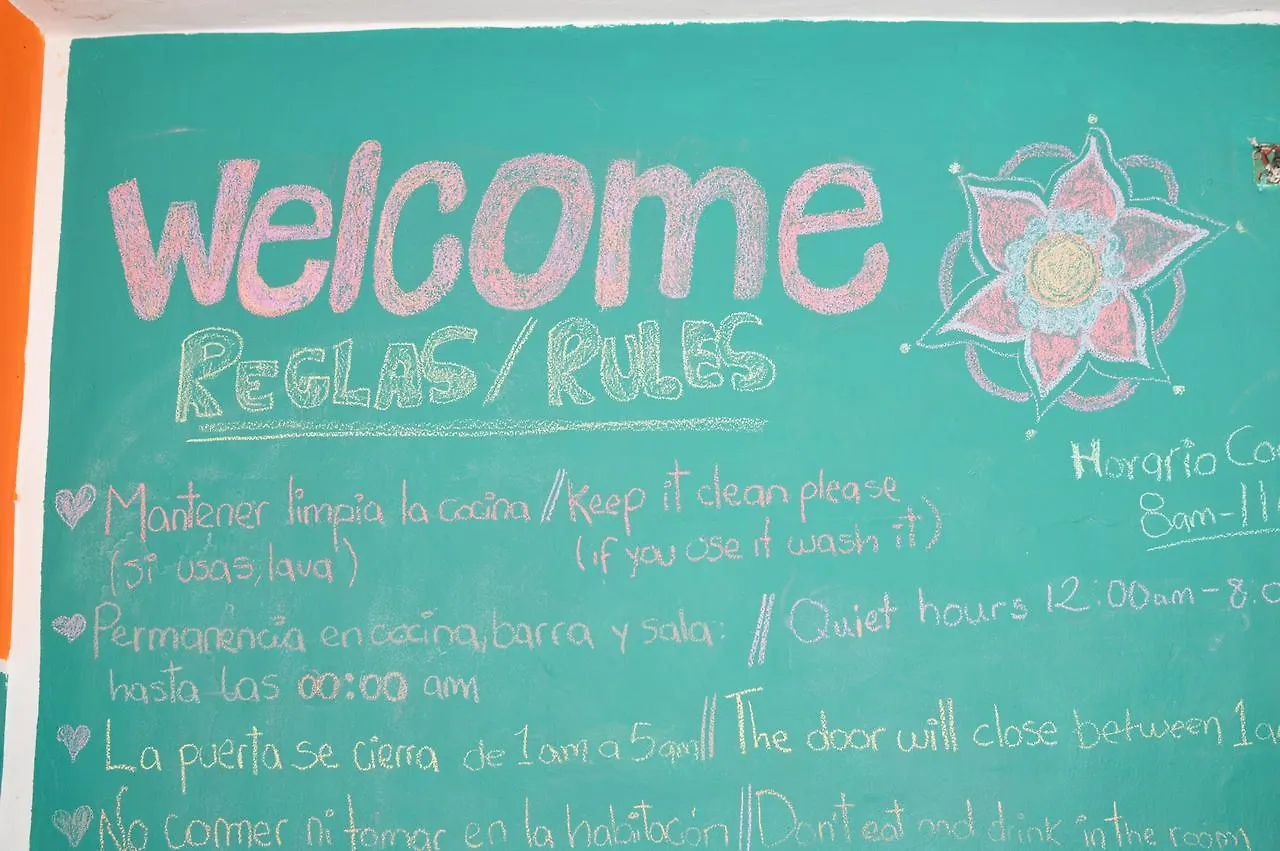 Welcome
REGLAS/RULES
Horario
8am-11
Mantener limpia la cocina // Keep it clean please
(si usas, lava) (if you use it wash it)
Permanencia en cocina, barra y sala: // Quiet hours 12:00am-8:0
hasta las 00:00 am
La puerta se cierra de 1am a 5am // The door will close between 1a
No comer ni tomar en la habitación // Don't eat and drink in the room